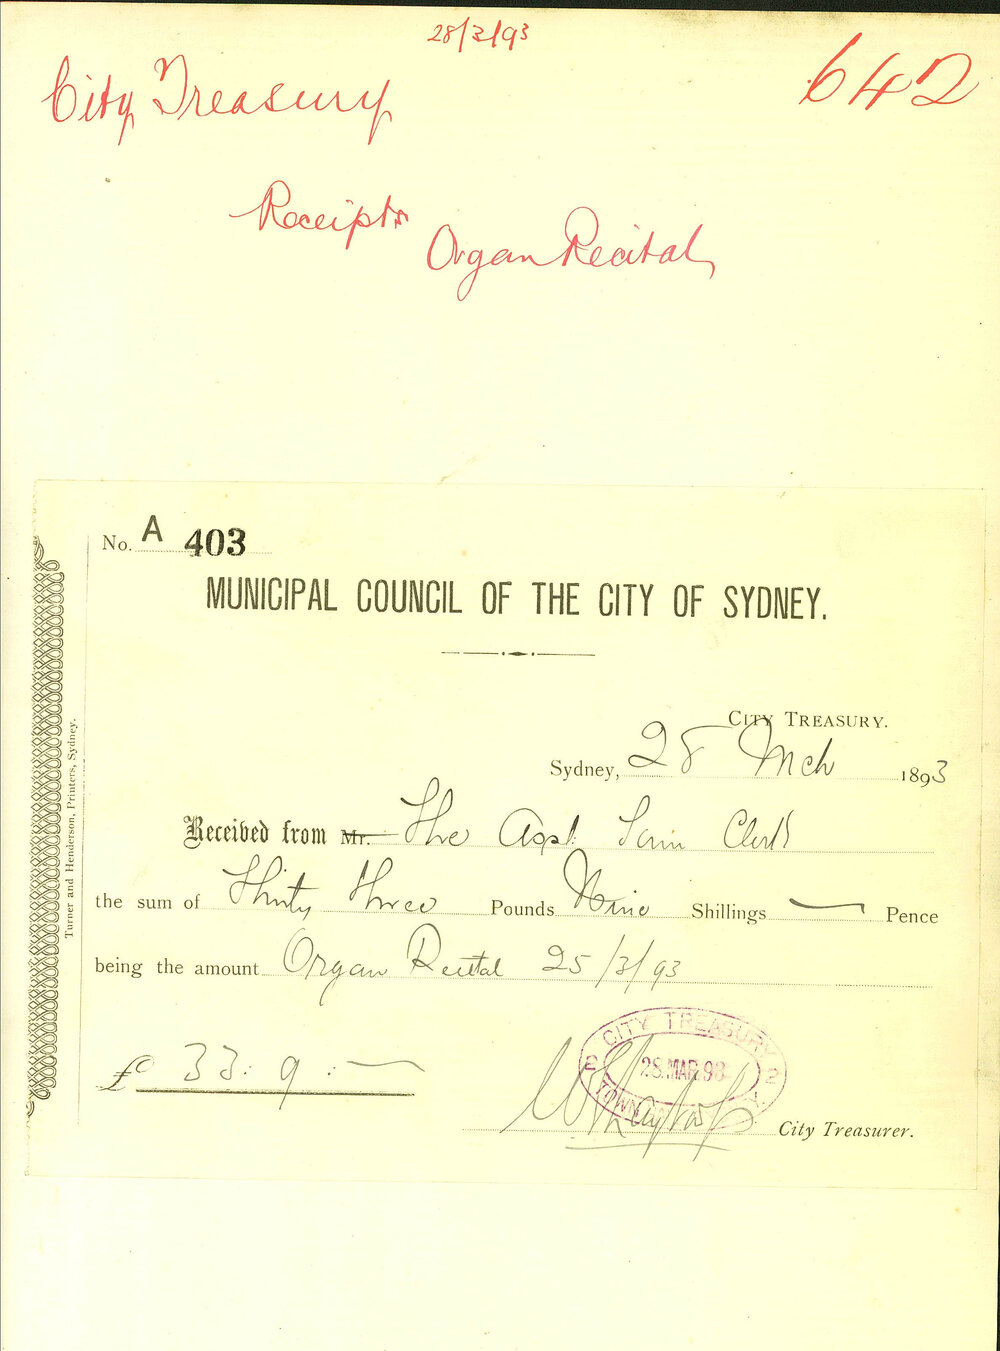 28/3/93
642
City Treasury
Receipts
Organ Recital
No. A 403
MUNICIPAL COUNCIL OF THE CITY OF SYDNEY.
CITY TREASURY.
Sydney, 28 Mch 1893
Received from Mr. The Asst. Town Clerk
the sum of Thirty three Pounds Nine Shillings — Pence
being the amount Organ Recital 25/3/93
£ 33. 9. —
CITY TREASURY
28.MAR.93
TOWN
City Treasurer.
Turner and Henderson, Printers, Sydney.